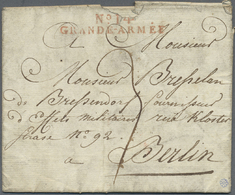 No. 14
GRANDE-ARMÉE
A Monsieur
Monsieur Breslan
de Bressendorf fournisseur
d'effets militaires rue Kloster
Strase No. 92.
a Berlin